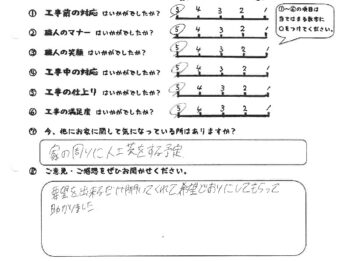 ① 工事前の対応 はいかがでしたか? 5 4 3 2 1
② 職人のマナー はいかがでしたか? 5 4 3 2 1
③ 職人の笑顔 はいかがでしたか? 5 4 3 2 1
④ 工事中の対応 はいかがでしたか? 5 4 3 2 1
⑤ 工事の仕上り はいかがでしたか? 5 4 3 2 1
⑥ 工事の満足度 はいかがでしたか? 5 4 3 2 1
①〜⑥の項目は
当てはまる数字に
○をつけてください。
⑦ 今、他にお家に関して気になっている所はありますか?
家の周りに人工芝をする予定
⑧ ご意見・ご感想をぜひお聞かせください。
要望を出来るだけ聞いてくれて希望どおりにしてもらって
助かりました